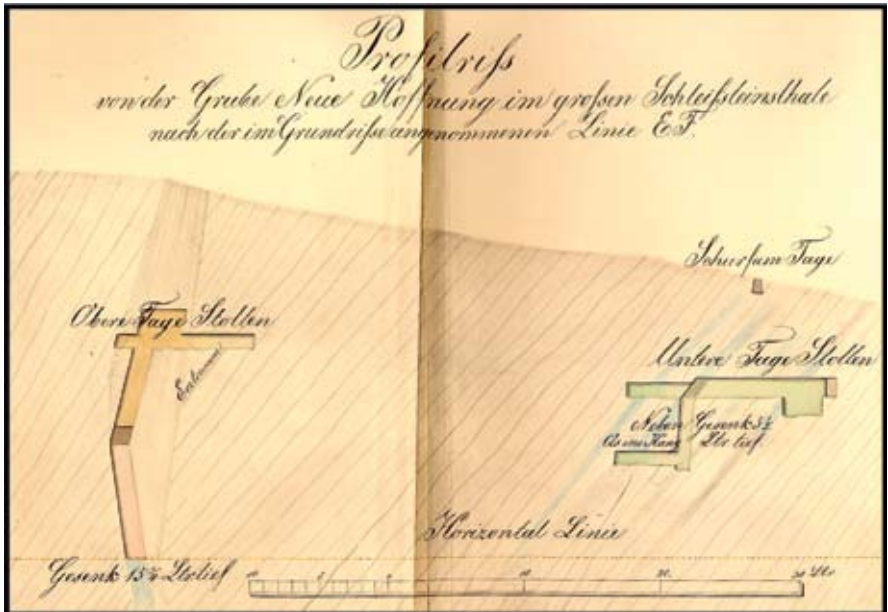 Profilriß
von der Grube Neue Hoffnung im großen Schleifsteinsthale
nach der im Grundriße angenommenen Linie E.F.
Schurf am Tage
Obere Tage Stollen
Untere Tage Stollen
Gesenk 5½
Ltr. tief.
Horizontal Linie
Gesenk 15½ Ltr. tief
10 5 10 20 30 Ltr